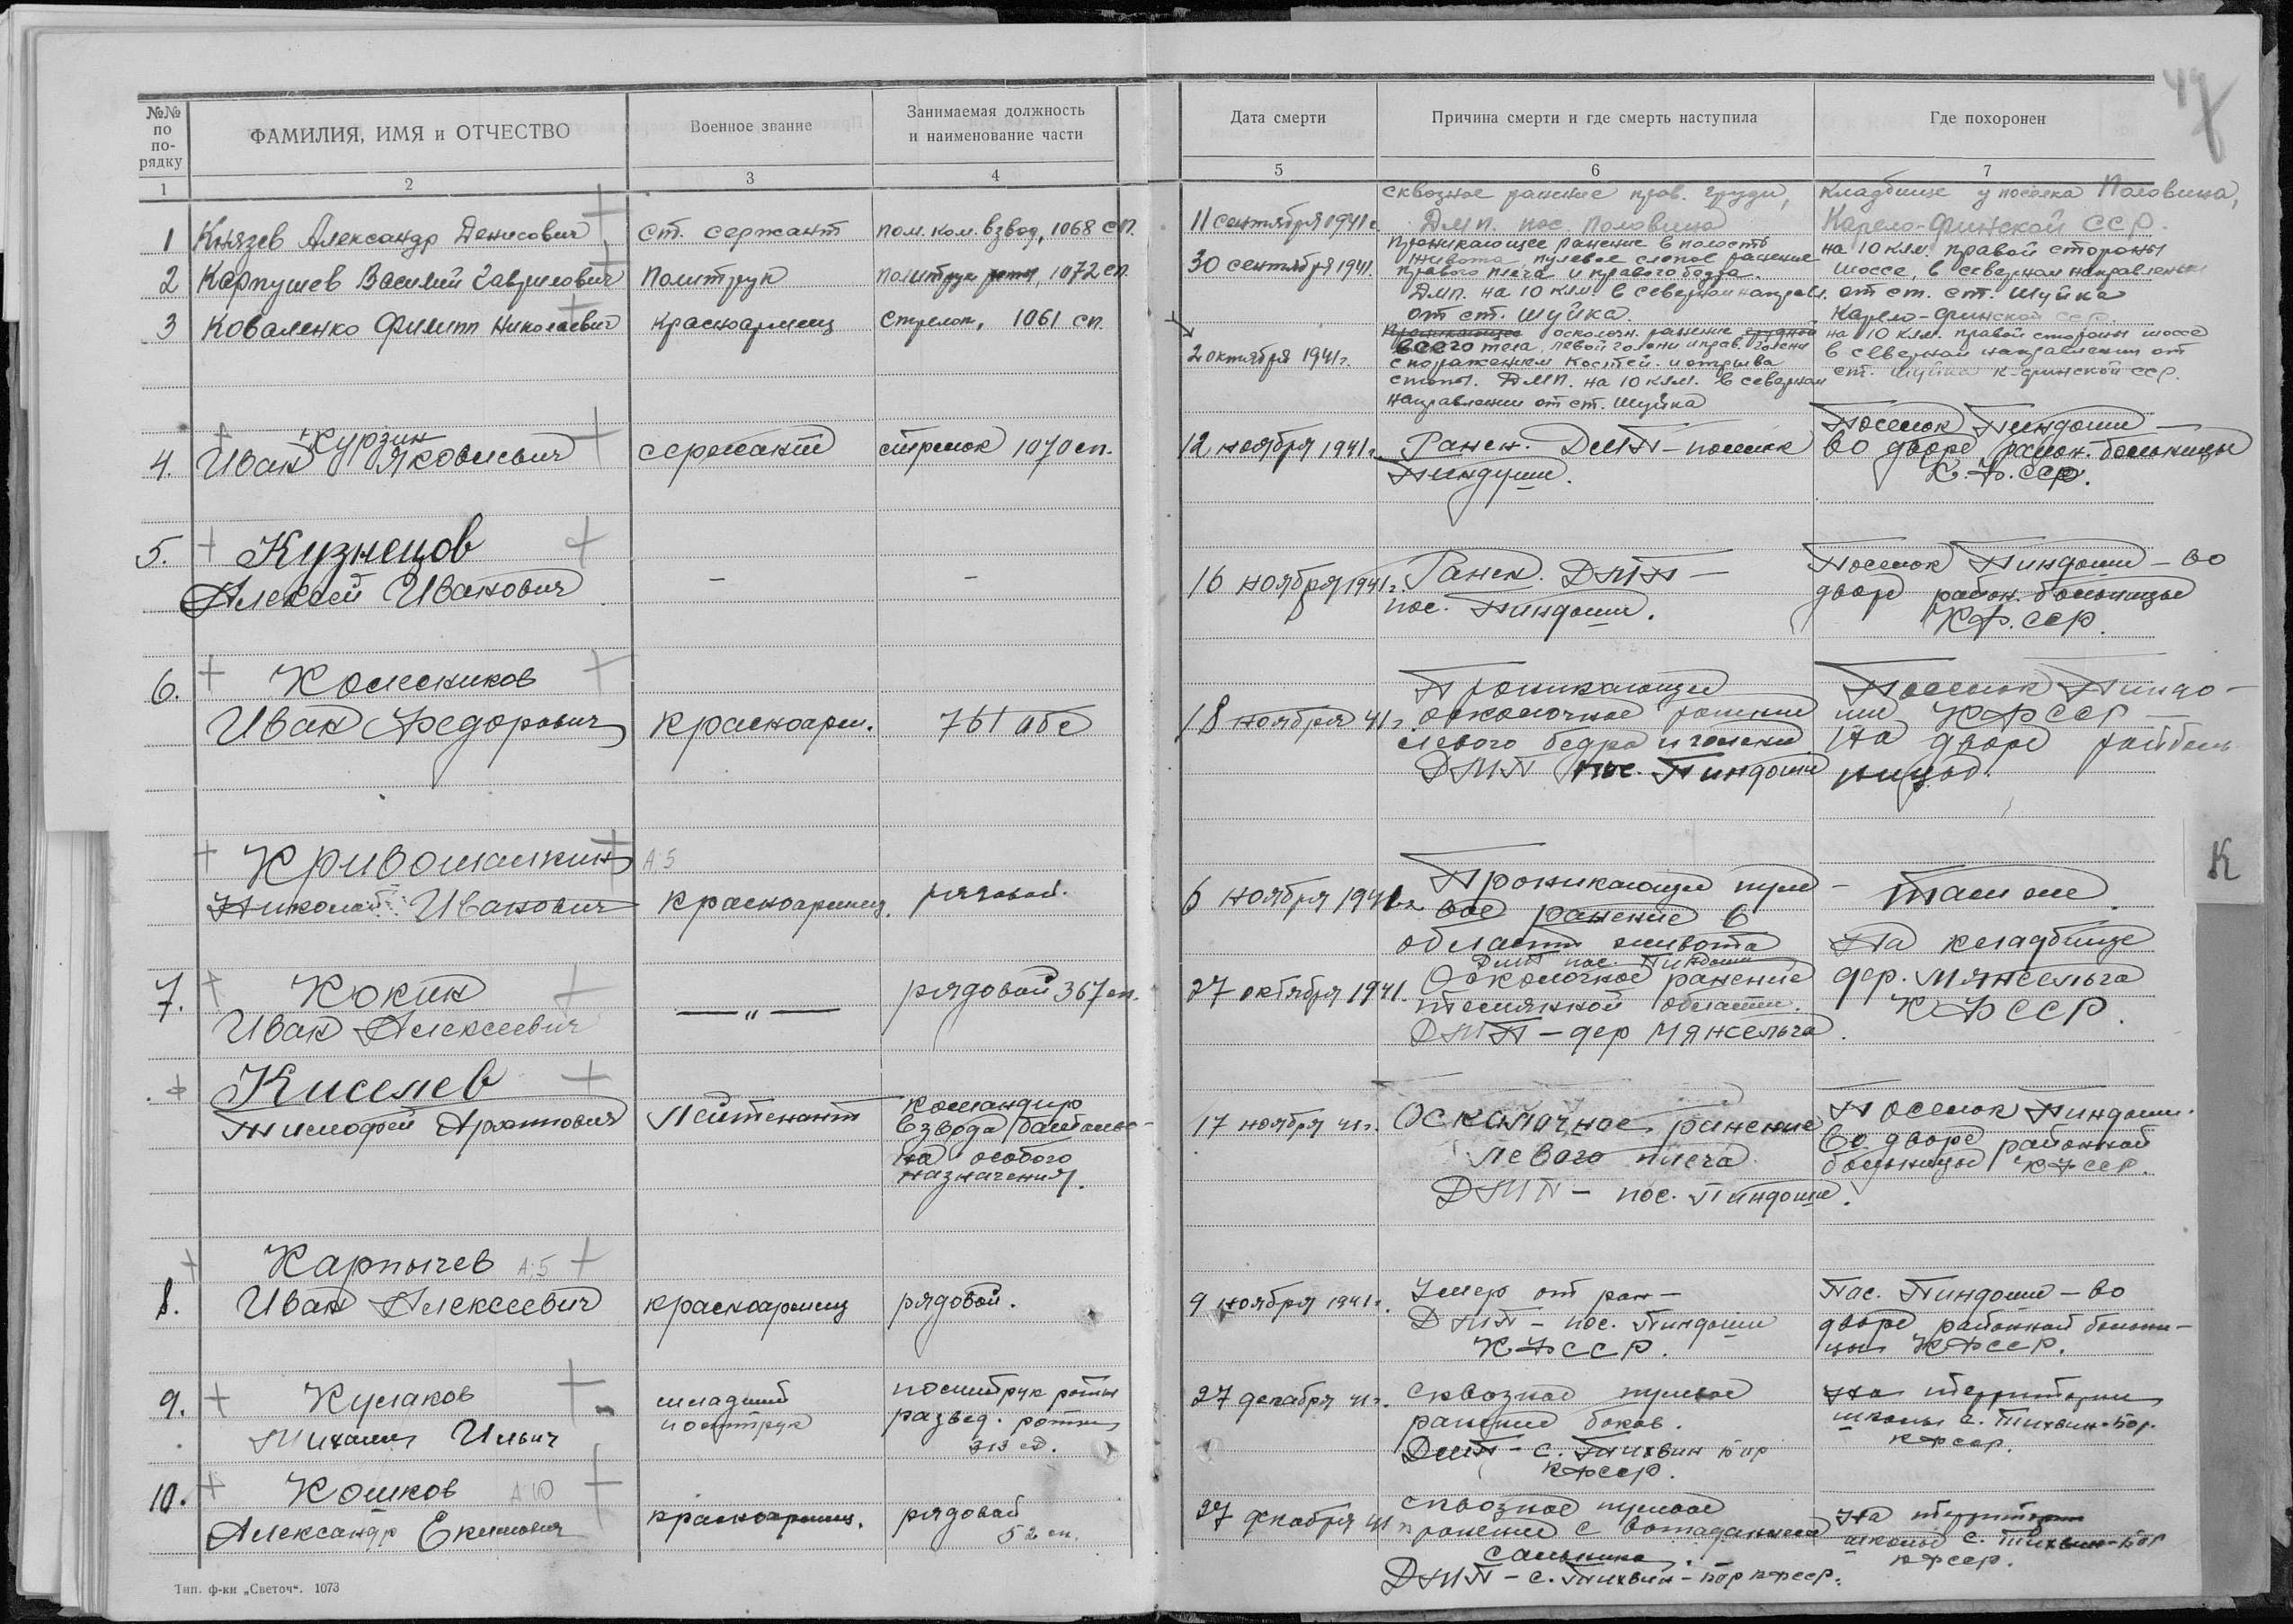 №№ по по-рядку
ФАМИЛИЯ, ИМЯ и ОТЧЕСТВО
Военное звание
Занимаемая должность
и наименование части
Дата смерти
Причина смерти и где смерть наступила
Где похоронен
1 2 3 4 5 6 7
1 Князев Александр Денисович
ст. сержант
пом. ком. взвод, 1068 сп.
11 сентября 1941 г.
сквозное ранение прав. груди,
ДМП. пос. Половина
кладбище у поселка Половина,
Карело-Финской ССР.
2 Карпушев Василий Гаврилович
Политрук
политрук роты, 1072 сп
30 сентября 1941.
Проникающее ранение в полость
живота, пулевое слепое ранение
правого плеча и правого бедра.
ДМП. на 10 клм. в северном направл.
от ст. Шуйка.
на 10 клм. правой стороны
шоссе, в северном направлении
от ст. ст. Шуйка
Карело-Финской ССР.
3 Коваленко Филипп Николаевич
Красноармеец
Стрелок, 1061 сп.
2 октября 1941 г.
Проникающее осколочн. ранение грудной
всего тела, левой голени и прав. голени
с поражением костей. и отрыва
стопы. ДМП. на 10 клм. в северном
направлении от ст. Шуйка
на 10 клм. правой стороны шоссе
в северном направлении от
ст. Шуйка К-финской ССР.
4. Курзин
Иван Яковлевич
сержант
стрелок 1070 сп.
12 ноября 1941 г.
Ранен. ДМП – поселок
Пиндуши.
Поселок Пиндоши –
во дворе район. больницы
К.Ф.ССР.
5. Кузнецов
Алексей Иванович
–
–
16 ноября 1941 г.
Ранен. ДМП –
пос. Пиндоши.
Поселок Пиндоши – во
дворе район. больницы
КФ.ССР.
6. Колесников
Иван Федорович
красноарм.
761 абс
18 ноября 41 г.
Проникающее
осколочное ранение
левого бедра и голени
ДМП пос. Пиндоши
Поселок Пиндо-
ши КФССР –
На дворе райболь
ницы.
Кривошапкин А.5
Николай Иванович
Красноармеец.
рядовой.
6 ноября 1941 г.
Проникающее пуле-
вое ранение в
области живота
ДМП пос. Пиндоши
Там же.
7. Кокин
Иван Алексеевич
— " —
рядовой 367 сп.
27 октября 1941.
Осколочное ранение
темянной области.
ДМП – дер Мянсельга.
На кладбище
дер. Мянсельга
КФССР.
Киселев
Тимофей Архипович
Лейтенант
командир
взвода батальо-
на особого
назначения.
17 ноября 41 г.
Осколочное ранение
левого плеча
ДМП – пос. Пиндоши.
Поселок Пиндоши.
во дворе районной
больницы КФССР.
8. Карпычев А.5
Иван Алексеевич
красноармеец
рядовой.
9 ноября 1941 г.
Умер от ран –
ДМП – пос. Пиндоши
КФССР.
Пос. Пиндоши – во
дворе районной больни-
цы КФССР.
9. Кулаков
Михаил Ильич
младший
политрук
политрук роты
развед. роты
313 сд.
27 декабря 41 г.
сквозное пулевое
ранение боков.
ДМП – с. Тихвин бор
КФССР.
На территории
школы с. Тихвин-Бор.
КФССР.
10. Кошков А 10
Александр Екимович
красноармеец.
рядовой
52 сп.
27 декабря 41
сквозное пулевое
ранение с выпадением
сальника.
ДМП – с. Тихвин-бор КФССР.
На территории
школы с. Тихвин-Бор
КФССР.
К
Тип. ф-ки „Светоч“. 1073